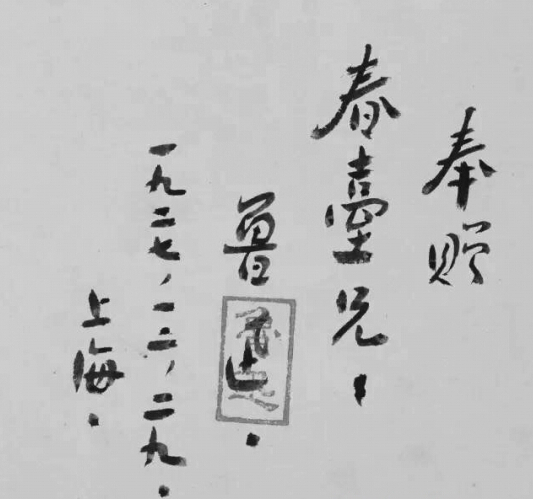 奉贈
春臺兄.
魯迅.
一九二七,一二,二九.
上海.